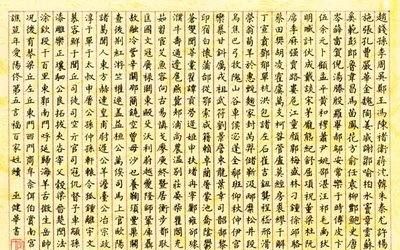 趙錢孫李周吳鄭王馮陳褚衛蔣沈韓楊朱秦尤許何呂
施張孔曹嚴華金魏陶姜戚謝鄒喻柏水竇章雲蘇潘葛
奚范彭郎魯韋昌馬苗鳳花方俞任袁柳酆鮑史唐費廉
岑薛雷賀倪湯滕殷羅畢郝鄔安常樂于時傅皮卞齊康
伍余元卜顧孟平黃和穆蕭尹姚邵湛汪祁毛禹狄米貝
明臧計伏成戴談宋茅龐熊紀舒屈項祝董梁杜阮藍閔
席季麻強賈路婁危江童顏郭梅盛林刁鍾徐邱駱高夏
蔡田樊胡凌霍虞萬支柯昝管盧莫經房裘繆干解應宗
丁宣賁鄧郁單杭洪包諸左石崔吉鈕龔程嵇邢滑裴陸
榮翁荀羊於惠甄麴家封芮羿儲靳汲邴糜松井段富巫
烏焦巴弓牧隗山谷車侯宓蓬全郗班仰秋仲伊宮甯仇
欒暴甘鈄厲戎祖武符劉景詹束龍葉幸司韶郜黎薊薄
印宿白懷蒲邰從鄂索咸籍賴卓藺屠蒙池喬陰鬱胥能
蒼雙聞莘黨翟譚貢勞逄姬申扶堵冉宰酈雍郤璩桑桂
濮牛壽通邊扈燕冀郟浦尚農溫別莊晏柴瞿閻充慕連
茹習宦艾魚容向古易慎戈廖庾終暨居衡步都耿滿弘
匡國文寇廣祿闕東歐殳沃利蔚越夔隆師鞏厙聶晁勾
敖融冷訾辛闞那簡饒空曾毋沙乜養鞠須豐巢關蒯相
查後荊紅游竺權逯蓋益桓公万俟司馬上官歐陽夏侯
諸葛聞人東方赫連皇甫尉遲公羊澹臺公冶宗政濮陽
淳于單于太叔申屠公孫仲孫軒轅令狐鍾離宇文長孫
慕容鮮于閭丘司徒司空亓官司寇仉督子車顓孫端木巫馬公西
漆雕樂正壤駟公良拓跋夾谷宰父穀梁晉楚閆法汝鄢
涂欽段干百里東郭南門呼延歸海羊舌微生岳帥緱亢
況後有琴梁丘左丘東門西門商牟佘佴伯賞南宮墨哈
譙笪年愛陽佟第五言福百家姓續
王建華書